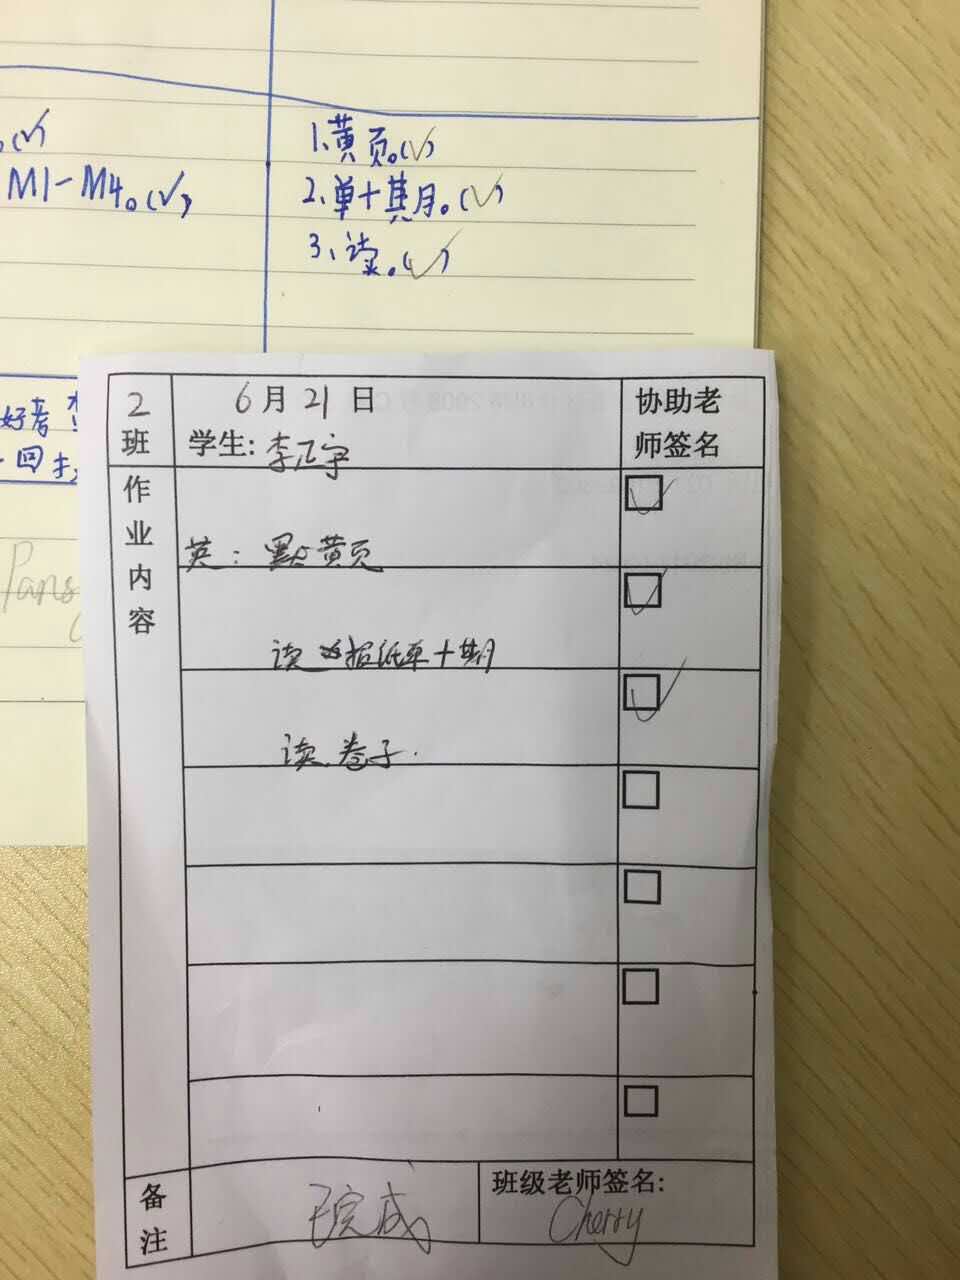 。(√)
M1-M4。(√)
1.黄页。(√)
2.单十其月。(√)
3、读。(√)
好考
回扌
Pans
2班
6月21日
学生:李汇宇
协助老师签名
作业内容
英：點黄页
读报纸单十期
读卷子.
备注
已完成
班级老师签名:
Cherry